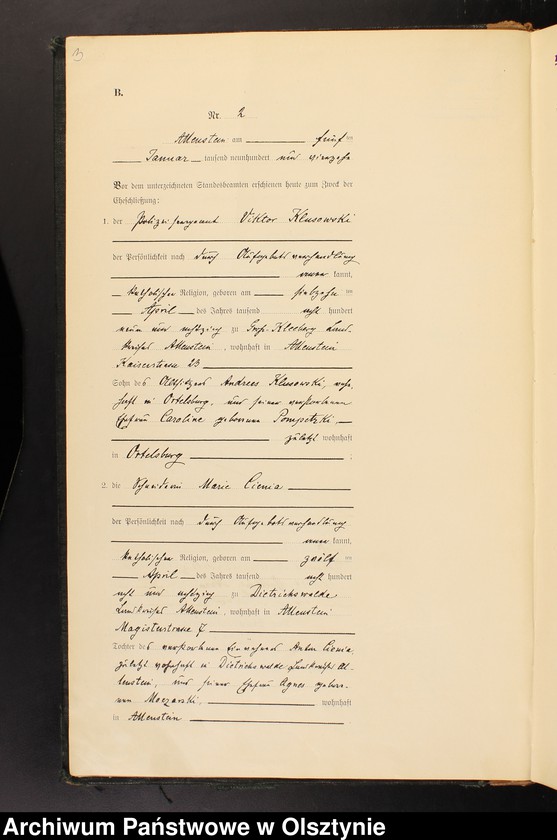 B.
Nr. 2
Allenstein am fünften
Januar tausend neunhundert und vierzehn
Vor dem unterzeichneten Standesbeamten erschienen heute zum Zweck der
Eheschließung:
1. der Polizeisergeant Viktor Klusowski
der Persönlichkeit nach durch Aufgebotsverhandlung
anerkannt,
katholischer Religion, geboren am siebzehnten
April des Jahres tausend acht hundert
neun und achtzig zu Groß Kleeberg Land-
kreises Allenstein, wohnhaft in Allenstein
Kaiserstrasse 23
Sohn des Altsitzers Andreas Klusowski, wohn-
haft in Ortelsburg, und seiner verstorbenen
Ehefrau Caroline geborenen
zuletzt wohnhaft
in Ortelsburg ;
2. die Schneiderin Marie Cienia
der Persönlichkeit nach durch Aufgebotsverhandlung
anerkannt,
katholischer Religion, geboren am zwölften
April des Jahres tausend acht hundert
acht und achtzig zu Dietrichswalde
Landkreises Allenstein, wohnhaft in Allenstein
Magisterstrasse 7
Tochter des verstorbenen Einwohners Anton Cienia,
zuletzt wohnhaft in Dietrichswalde Landkreises Al-
lenstein, und seiner Ehefrau Agnes gebore-
nen Moczarski, wohnhaft
in Allenstein
Archiwum Państwowe w Olsztynie